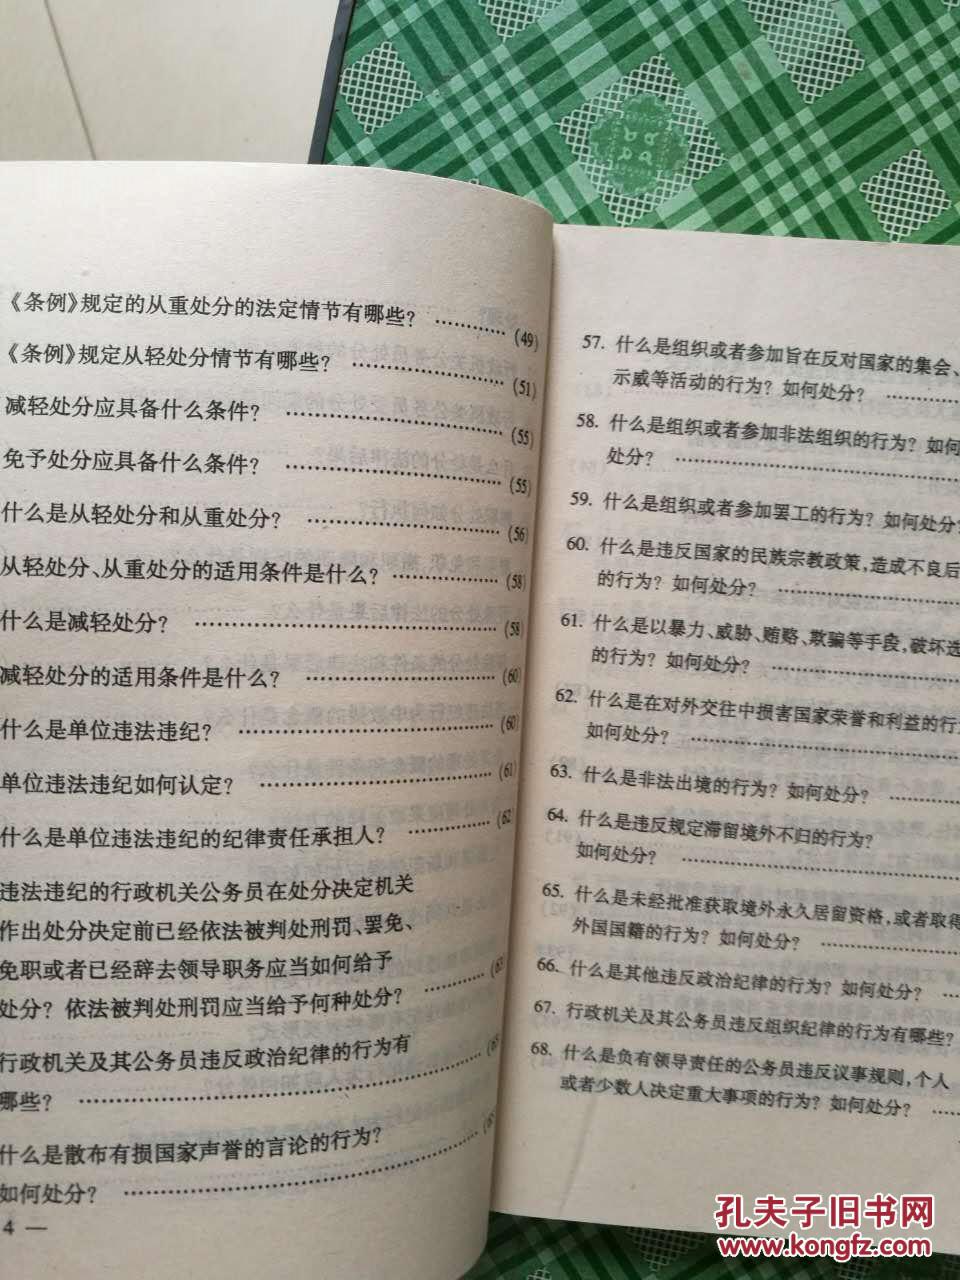 《条例》规定的从重处分的法定情节有哪些？ ………… (49)
《条例》规定从轻处分情节有哪些？ ………………… (51)
减轻处分应具备什么条件？ ………………………… (55)
免予处分应具备什么条件？ ………………………… (55)
什么是从轻处分和从重处分？ ……………………… (56)
从轻处分、从重处分的适用条件是什么？ …………… (58)
什么是减轻处分？ …………………………………… (58)
减轻处分的适用条件是什么？ ……………………… (60)
什么是单位违法违纪？ ……………………………… (60)
单位违法违纪如何认定？ …………………………… (61)
什么是单位违法违纪的纪律责任承担人？ ………… (62
违法违纪的行政机关公务员在处分决定机关
作出处分决定前已经依法被判处刑罚、罢免、
免职或者已经辞去领导职务应当如何给予
处分？依法被判处刑罚应当给予何种处分？ ………
行政机关及其公务员违反政治纪律的行为有
哪些？ ………………………………………………… (65
什么是散布有损国家声誉的言论的行为？
如何处分？ ……………………………………………
4 —
57. 什么是组织或者参加旨在反对国家的集会、
示威等活动的行为？如何处分？ …………
58. 什么是组织或者参加非法组织的行为？如何
处分？ ……………………………
59. 什么是组织或者参加罢工的行为？如何处分？
60. 什么是违反国家的民族宗教政策，造成不良后
的行为？如何处分？ ……………………
61. 什么是以暴力、威胁、贿赂、欺骗等手段，破坏选
的行为？如何处分？ ……………………
62. 什么是在对外交往中损害国家荣誉和利益的行为
如何处分？ ……………………………
63. 什么是非法出境的行为？如何处分？ …………
64. 什么是违反规定滞留境外不归的行为？
如何处分？ ……………………………
65. 什么是未经批准获取境外永久居留资格，或者取得
外国国籍的行为？如何处分？ ……………
66. 什么是其他违反政治纪律的行为？如何处分？ …
67. 行政机关及其公务员违反组织纪律的行为有哪些？
68. 什么是负有领导责任的公务员违反议事规则，个人
或者少数人决定重大事项的行为？如何处分？ ……
孔夫子旧书网
www.kongfz.com